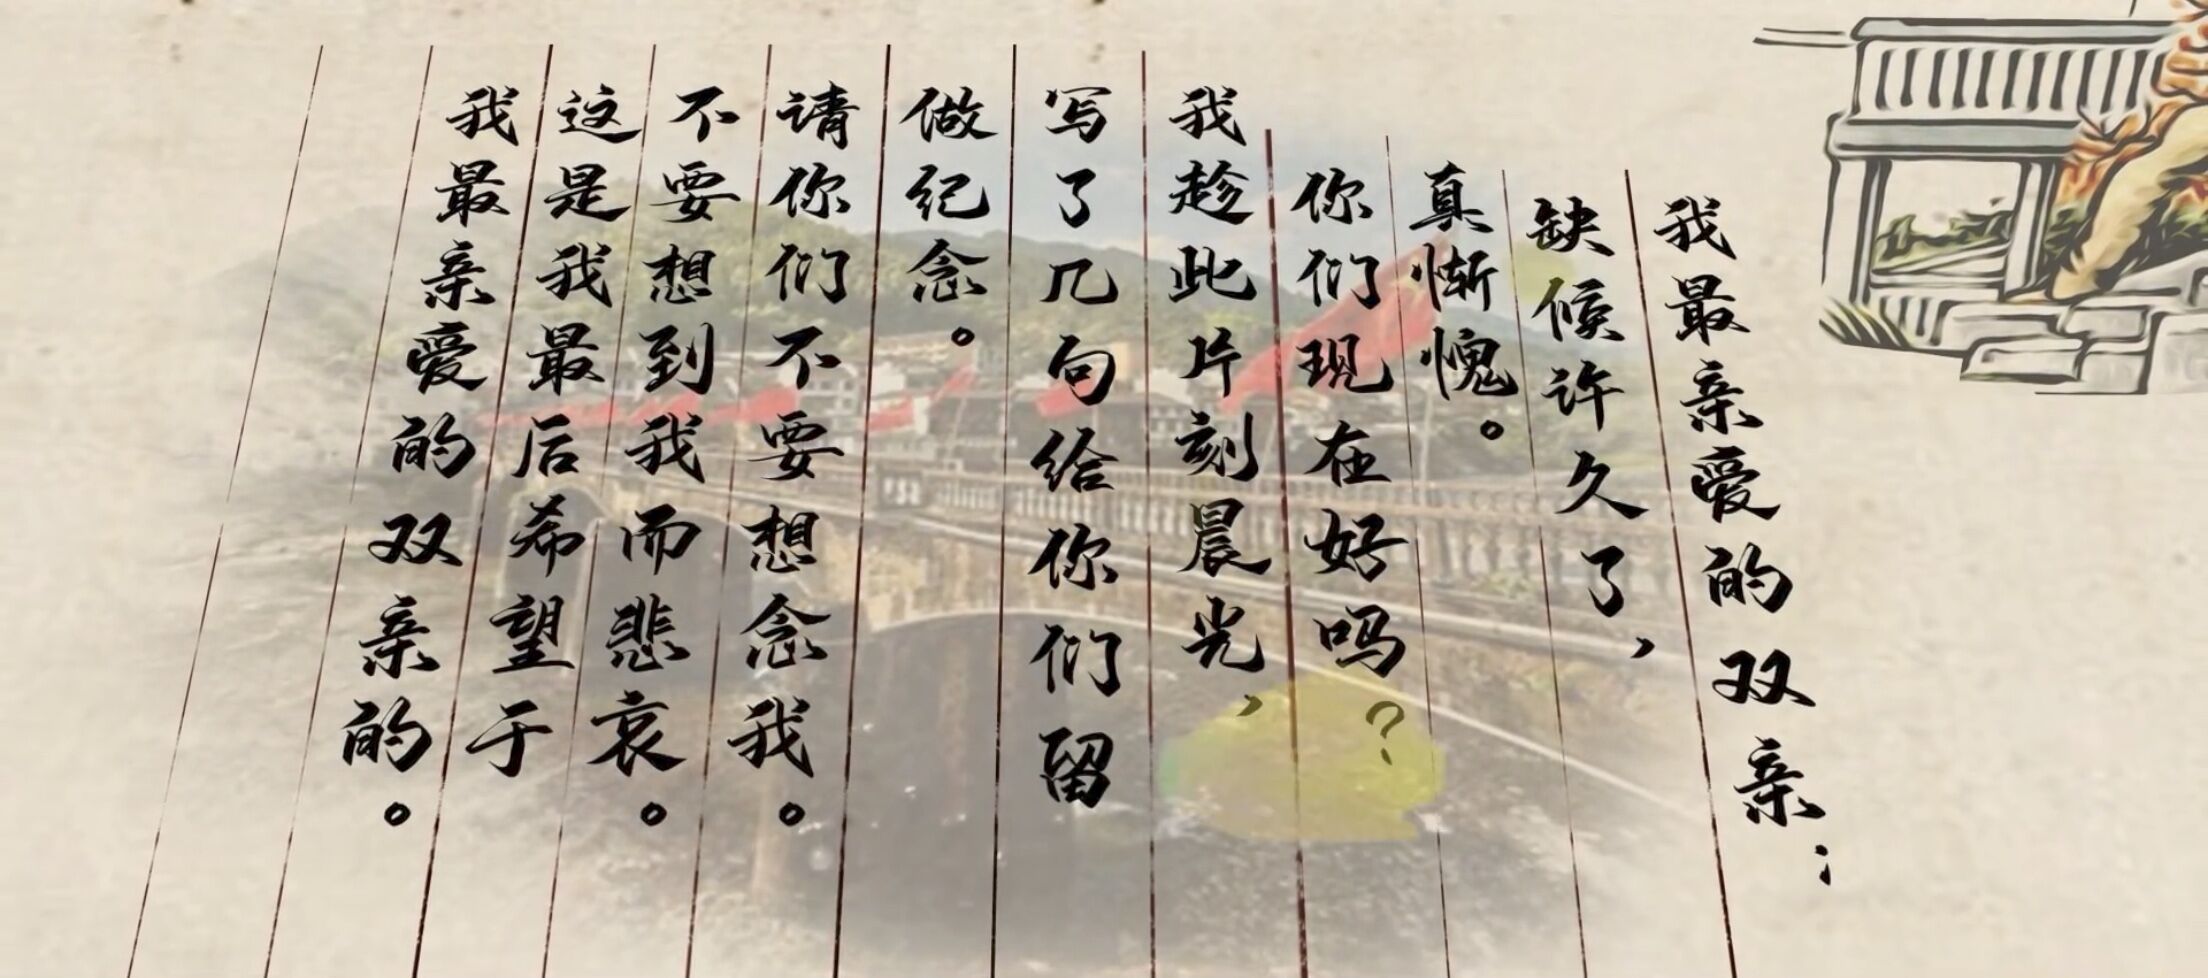 我最亲爱的双亲；
缺候许久了，
真惭愧。
你们现在好吗？
我趁此片刻晨光，
写了几句给你们留
做纪念。
请你们不要想念我。
不要想到我而悲哀。
这是我最后希望于
我最亲爱的双亲的。